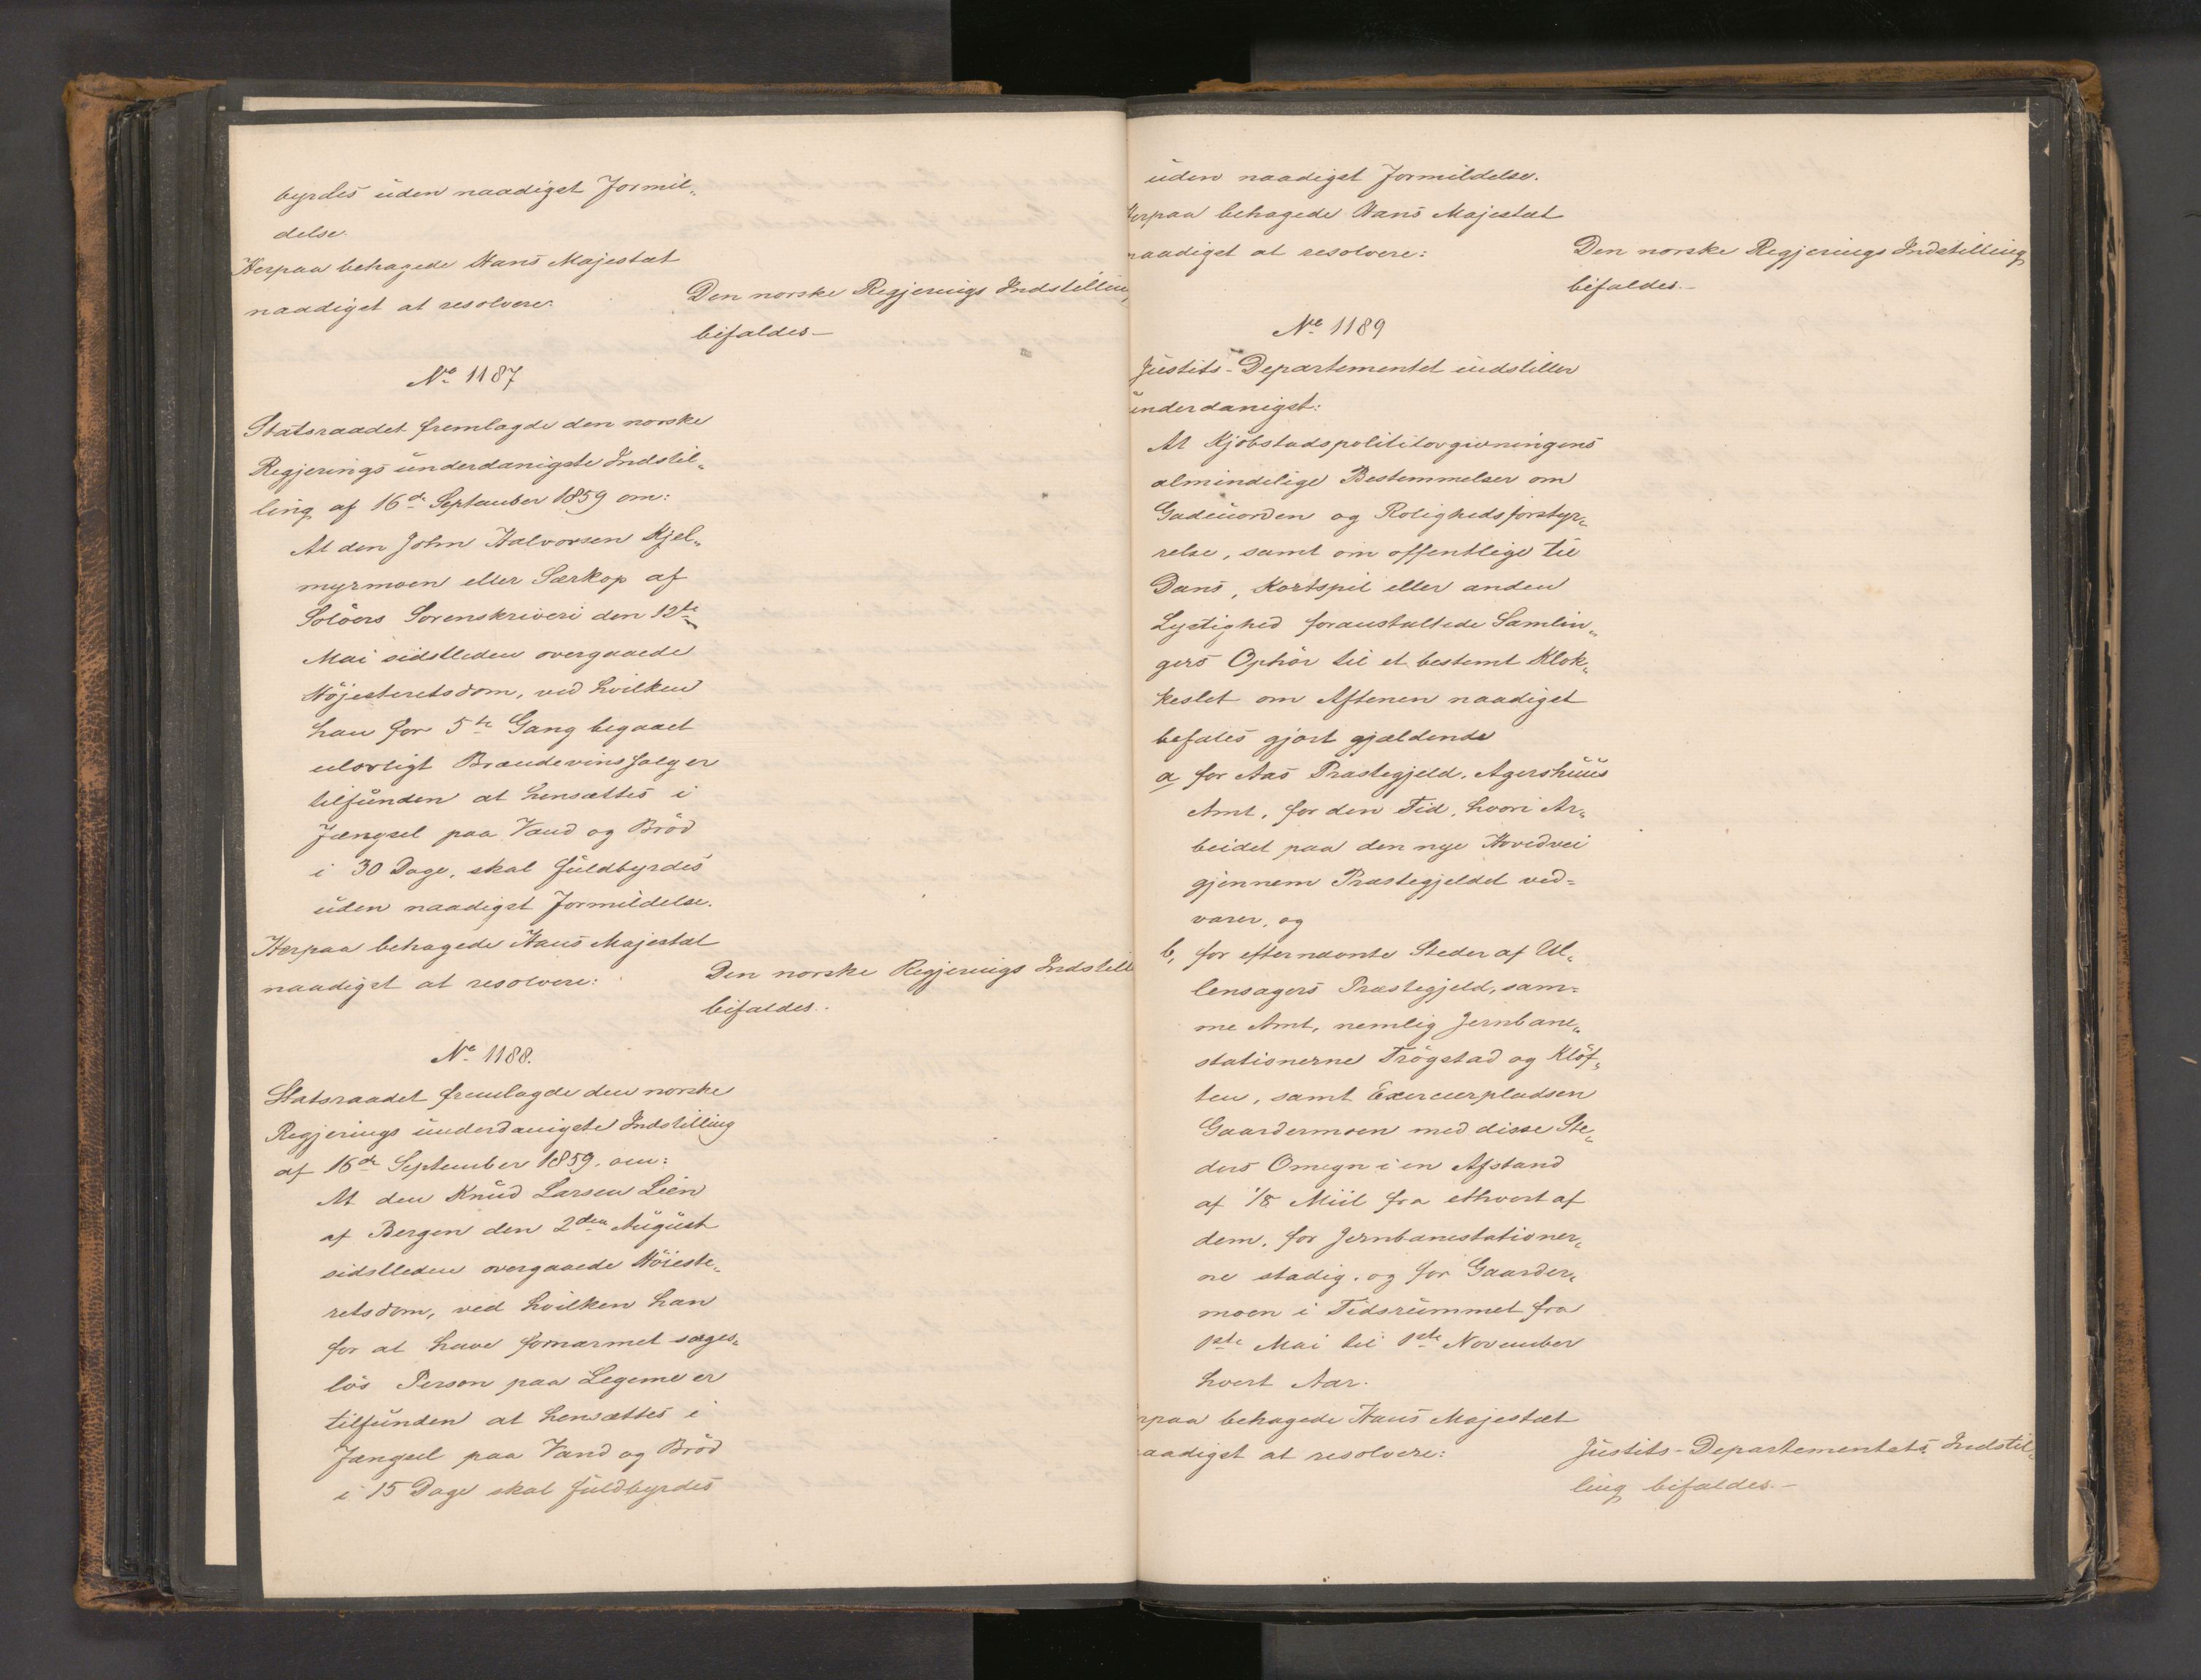 byrdes uden naadigst Formil„
delse.
Herpaa behagede Hans Majestæt
naadigst at resolvere:
Den norske Regjerings Indstilling
bifaldes –
No 1187
Statsraadet fremlagde den norske
Regjerings underdanigste Indstil„
ling af 16de September 1859 om:
At den John Halvorsen Kjel„
myrmoen eller Særkop af
Solöers Sorenskriveri den 12te
Mai sidstleden overgaaede
Höjesteretsdom, ved hvilken
han for 5te Gang begaaet
ulovligt Brændevinssalg er
tilfunden at hensættes i
Fængsel paa Vand og Bröd
i 30 Dage, skal fuldbyrdes
uden naadigst Formildelse.
Herpaa behagede Hans Majestæt
naadigst at resolvere:
Den norske Regjerings Indstill
bifaldes.
No 1188.
Statsraadet fremlagde den norske
Regjerings underdanigste Indstilling
af 16de September 1859. om:
At den Knud Larsen Lien
af Bergen den 2den August
sidstleden overgaaede Höieste„
retsdom, ved hvilken han
for at have fornærmet sages„
lös Person paa Legeme er
tilfunden at hensættes i
Fængsel paa Vand og Bröd
i 15 Dage skal fuldbyrdes
uden naadigst Formildelse.
Herpaa behagede Hans Majestæt
naadigst at resolvere:
Den norske Regjerings Indstilling
bifaldes. –
No 1189
Justits-Departementet indstiller
underdanigst:
At Kjöbstadspolitilovgivningens
almindelige Bestemmelser om
Gadeuorden og Rolighedsforstyr„
relse, samt om offentlige til
Dans, Kortspil eller anden
Lystighed foranstaltede Samlin„
gers Ophör til et bestemt Klok„
keslet om Aftenen naadigst
befales gjort gjældende
a for Aas Præstegjeld, Agershuus
Amt, for den Tid, hvori Ar„
beidet paa den nye Hovedvei
gjennem Præstegjeldet ved=
varer, og
b, for efternævnte Steder af Ul„
lensagers Præstegjeld, sam=
me Amt, nemlig Jernbane„
stationerne Trögstad og Klöf„
ten, samt Exercerpladsen
Gaardermoen med disse Ste„
ders Omegn i en Afstand
af 1/8 Miil fra ethvert af
dem, for Jernbanestationer„
ne stadig, og for Gaarder„
moen i Tidsrummet fra
1ste Mai til 1ste November
hvert Aar.
rpaa behagede Hans Majestæt
aadigst at resolvere:
Justits-Departementets Indstil„
ling bifaldes. –